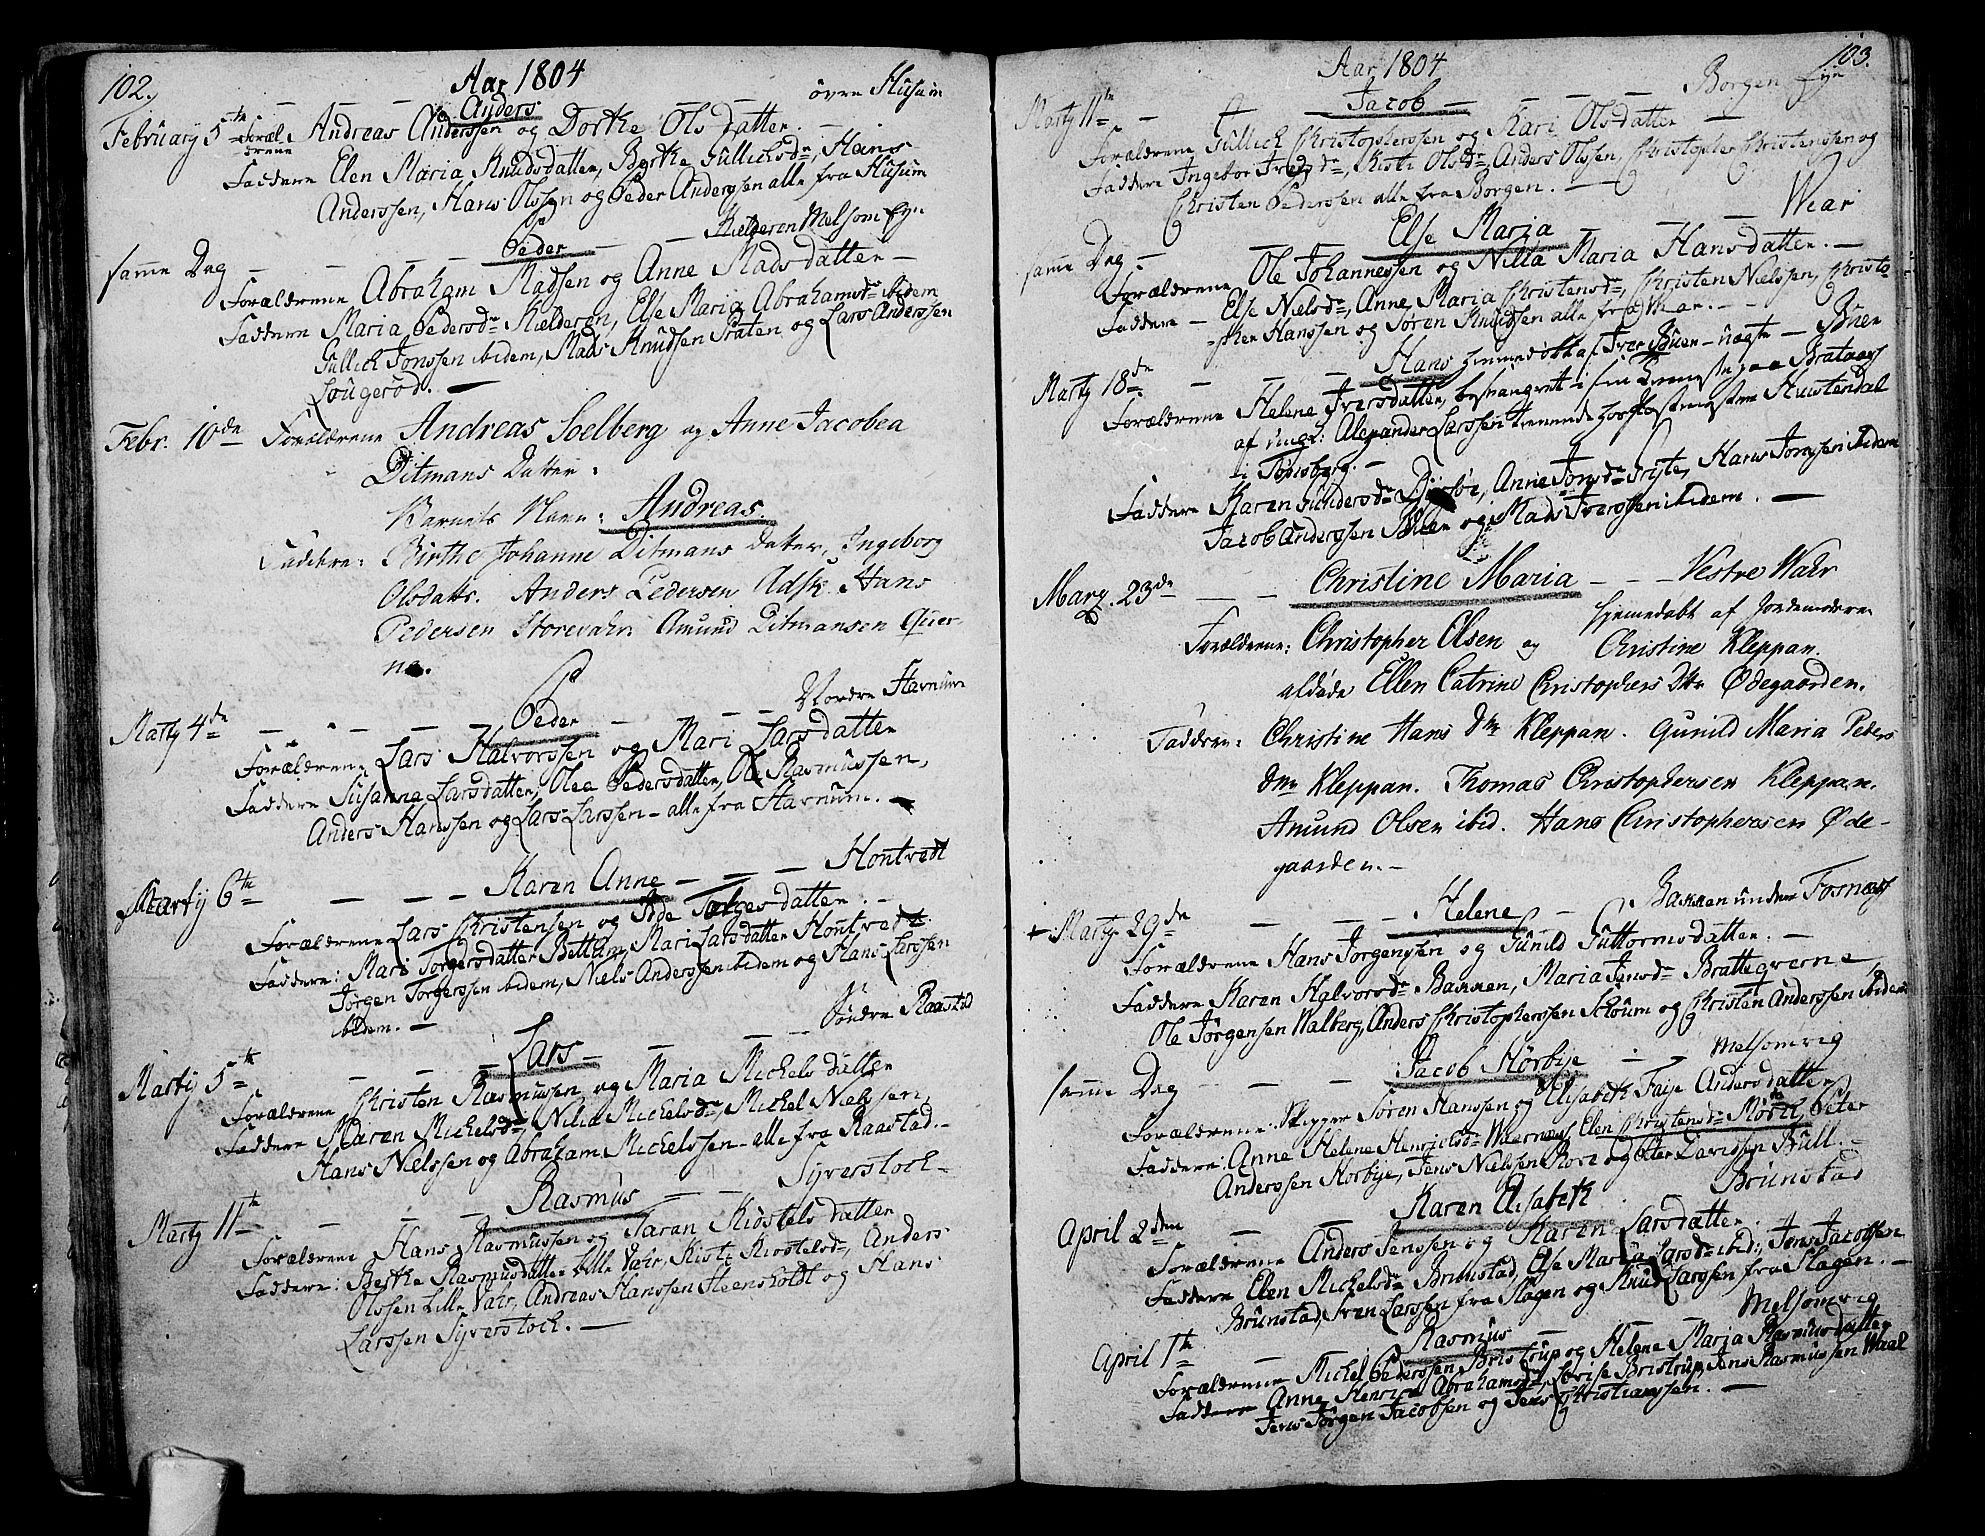 102.
Aar 1804
Anders
övre Husum
February 5te Forældrene Andreas Anderssen og Dorthe Olsdatter. —
Faddere Elen Maria Knudsdatter, Berthe Gullichsdr, Hans
Anderssen, Hans Olssen og Peder Anderssen alle fra Husum
Peder — — Kielderen Melsom Eje
samme Dag
Forældrene Abraham Madsen og Anne Madsdatter —
Faddere Maria Pedersdr Kielderen, Else Maria Abrahamsdr ibidem
Gullich Jonssen ibidem, Mads Knudsen Præten og Lars Anderssen
Lougerød. —
Febr. 10de Forældrene Andreas Soelberg og Anne Jacobea
Ditmans Datter:
Barnets Navn: Andreas.
Faddere: Birthe Johanne Ditmans Datter, Ingeborg
Olsdatt. Anders Pedersen Adsk. Hans
Pedersen Storevahr. Amund Ditmansen Quer-
ne.
Peder — — Nordre Havnum
Marty 4de
Forældrene Lars Halvorssen og Mari Larsdatter
Faddere Susanna Larsdatter, Olea Pedersdatter, Ole Rasmussen,
Anders Hanssen og Lars Larssen — alle fra Havnum. —
Marty 6te — — — Karen Anne — — — Hontvedt
Forældrene Lars Christensen og Torgersdatter. —
Faddere: Mari Torgersdatter Bettum, Mari Larsdatter Hontvedt.
Jörgen Torgerssen ibidem, Niels Anderssen ibidem og Hans Larssen
ibidem. —
Lars — — — Söndre Raastad
Marty 5te
Forældrene Christen Rasmussen og Maria Michelsdatter
Faddere Maren Michelsdr, Nilia Michelsdr, Michel Nielssen,
Hans Nielssen og Abraham Michelssen — alle fra Raastad. —
Marty 11te — — — Rasmus — — Syverstock —
Forældrene Hans Rasmussen og Taran Kiöstelsdatter
Faddere: Berthe Rasmusdatter Lille Vahr, Kisti Kiostelsdr, Anders
Olssen Lille Vahr, Andreas Hanssen Steensholdt og Hans
Larssen Syverstock. —
103.
Aar 1804
Marty 11te — Jacob — — — Borgen Eje
Forældrene Gullich Christopherssen og Kari Olsdatter —
Faddere Ingebor Iversdr, Kisti Olsdr, Anders Olssen, Christopher Christenssen og
Christen Pederssen alle fra Borgen. —
Else Maria — Wear
samme Dag —
Forældrene Ole Johannessen og Nilla Maria Hansdatter. —
Faddere — Else Nielsdr, Anne Maria Christensdr, Christen Nielssen, Christo-
pher Hanssen og Sören Knudsen alle fra Wear. —
Marty 18de — — — Hans hiemmedöbt af Iver Buer — uægte — Buer
Forældrene Helene Iversdatter, besvangret i sin Tieneste paa Brataas
af Ungk: Alexander Larssen tienende hos Postmester Hustendal
i Tönsberg. —
Faddere Karen Gundersdr, Anne Jonsdr, Hans Jonssen ibidem
Jacob Anderssen Buer og Mads Iverssen ibidem. —
Marz. 23de — — Christine Maria — — — Vestre Wahr
hjemedøbt af Jordemoderen
Forældrene: Christopher Olsen og Christine Kleppan.
afdøde Ellen Catrine Christophers Dtr Ødegaarden.
Faddere: Christine Hans Dtr Kleppan. Gunild Maria Peders
Dtr Kleppan. Thomas Christophersen Kleppan.
Amund Olsen ibid. Hans Christophersen Øde-
gaarden. —
+ Marty 29de — — — Helene — Bakken under Fosnæs
Forældrene Hans Jörgenssen og Gunild Guttormsdatter. —
Faddere Karen Halvorsdr Bakken, Maria Jensdr Bratteqverne,
Ole Jörgensen Walberg, Anders Christopherssen Skoum og Christen Anderssen ibidem
samme Dag — — — Jacob Hörbye — — Melsomvig
Forældrene: Skipper Sören Hanssen og Elisabeth Faye Andersdatter
Faddere: Anne Helene Henrichsdr Waernæs, Elen Christensdr Mörch, Peter
Anderssen Horbye, Jens Nielssen og Peter Davidsen Bull. —
April 2den — — Karen Elisabeth — Brunstad
Forældrene Anders Jenssen og Karen Larsdatter
Faddere Elen Michelsdr Brunstad, Else Maria Larsdr ibid:, Jens Jacobsen
Brunstad, Sven Larssen fra Slagen og Knud Larssen, fra Slagen. —
April 1te — Rasmus — — Melsomvig
Forældrene Michel Pederssen Bristrup og Helene Maria Rasmusdatter
Faddere Anne Henrica Abrahamsdr, Lovise Bristrup, Jens Rasmussen Waal
Jens Jörgen Jacobsen og Jens Christianssen. —